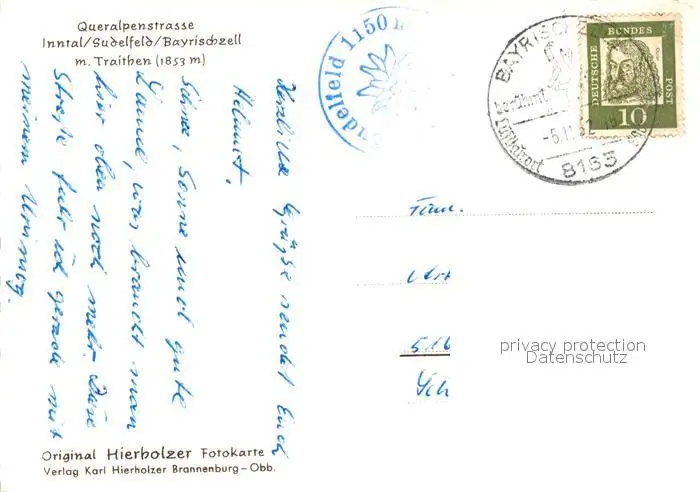 Queralpenstrasse
Inntal/Sudelfeld/Bayrischzell
m. Traithen (1853 m)
Herzliche Grüße sendet Euch
Helmut.
Schnee, Sonne und gute
Laune, was braucht man
hier oben noch mehr. Diese
Straße fuhr ich gerade mit
meinem Unimog.
Original Hierholzer Fotokarte
Verlag Karl Hierholzer Brannenburg-Obb.
Sudelfeld 1150
BAYRISCH
Luftkurort
-5.11.
8163
DEUTSCHE BUNDES POST
10
Fam.
516
privacy protection
Datenschutz